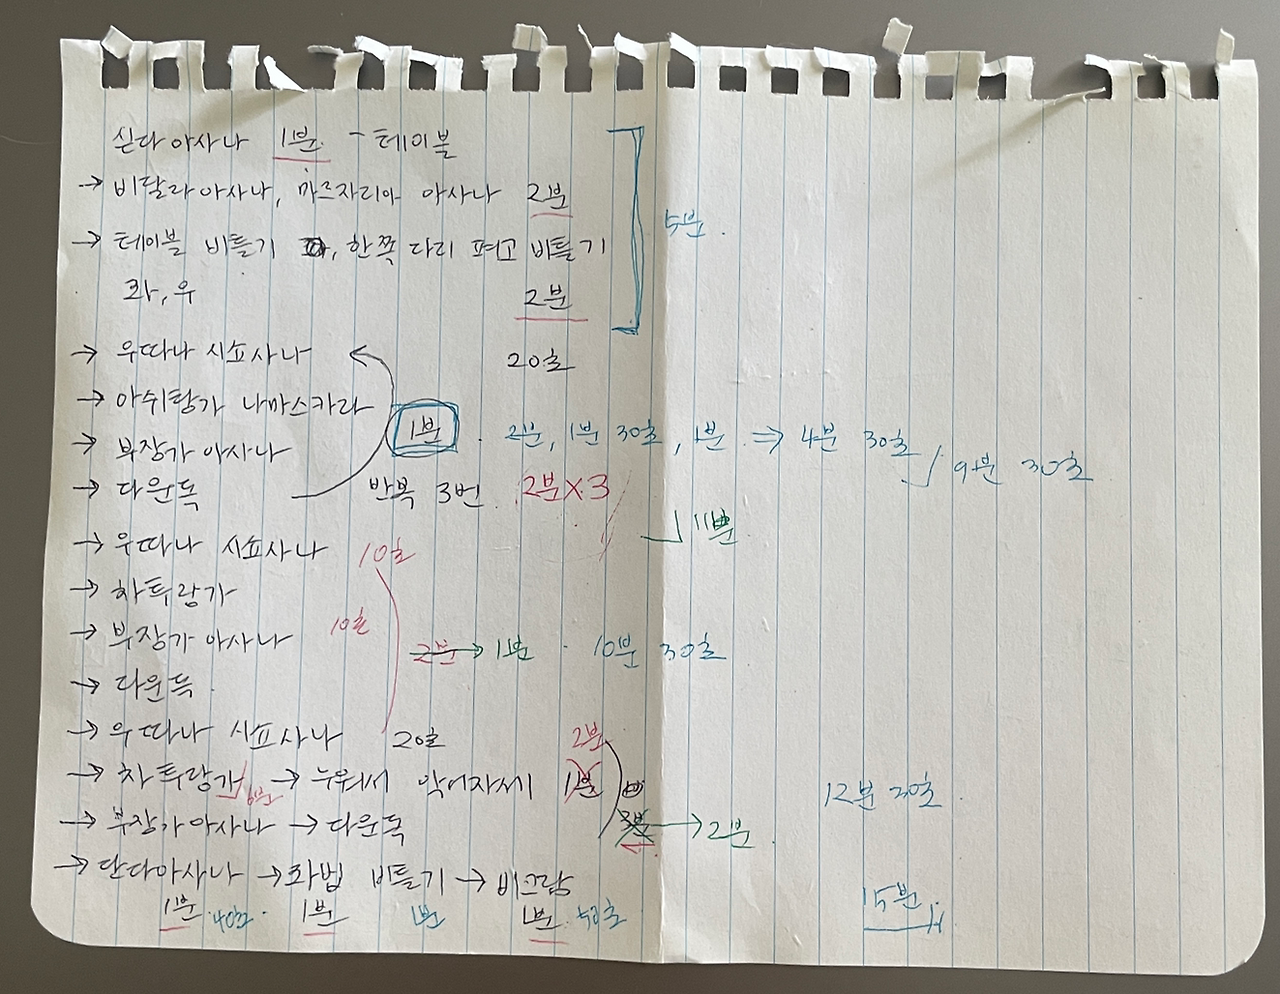 싣다아사나 1분 - 테이블
→ 비달라아사나, 마르자리아 아사나 2분
→ 테이블 비틀기 , 한쪽 다리 펴고 비틀기 5분
좌, 우 2분
→ 우따나 시쇼사나 20초
→ 아쉬탕가 나마스카라
→ 부장가 아사나 1분 . 2분, 1분 30초, 1분 ⇒ 4분 30초 9분 30초
→ 다운독 반복 3번 2분X3
11분
→ 우따나 시쇼사나 10초
→ 차투랑가
→ 부장가 아사나 10초 2분 → 1분 . 10분 30초
→ 다운독
→ 우따나 시쇼사나 20초 2분
→ 차투랑가 → 누워서 악어자세 1분 12분 30초
→ 부장가아사나 → 다운독 3분 → 2분
→ 단다아사나 → 좌법 비틀기 → 비크람
1분 40초 1분 1분 1분 50초 15분